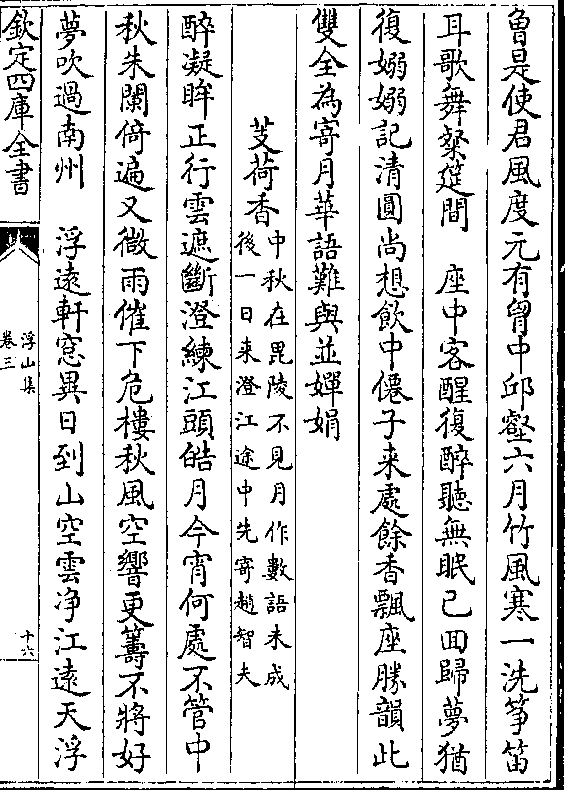 魯是使君風度元有胷中邱壑六月竹風寒一洗筝笛
耳歌舞粲筵間　座中客醒復醉聽無眠已回歸夢猶
復嫋嫋記清圓尚想飲中僊子来處餘香飄座勝韻此
雙全為寄月華語難與並嬋娟
芰荷香
中秋在毘陵不見月作數語未成
後一日来澄江途中先寄趙智夫
醉凝眸正行雲遮斷澄練江頭皓月今宵何處不管中
秋朱闌倚遍又微雨催下危樓秋風空響更籌不將好
夢吹過南州　浮逺軒窓異日到山空雲净江逺天浮
欽定四庫全書
浮山集
卷三
十六